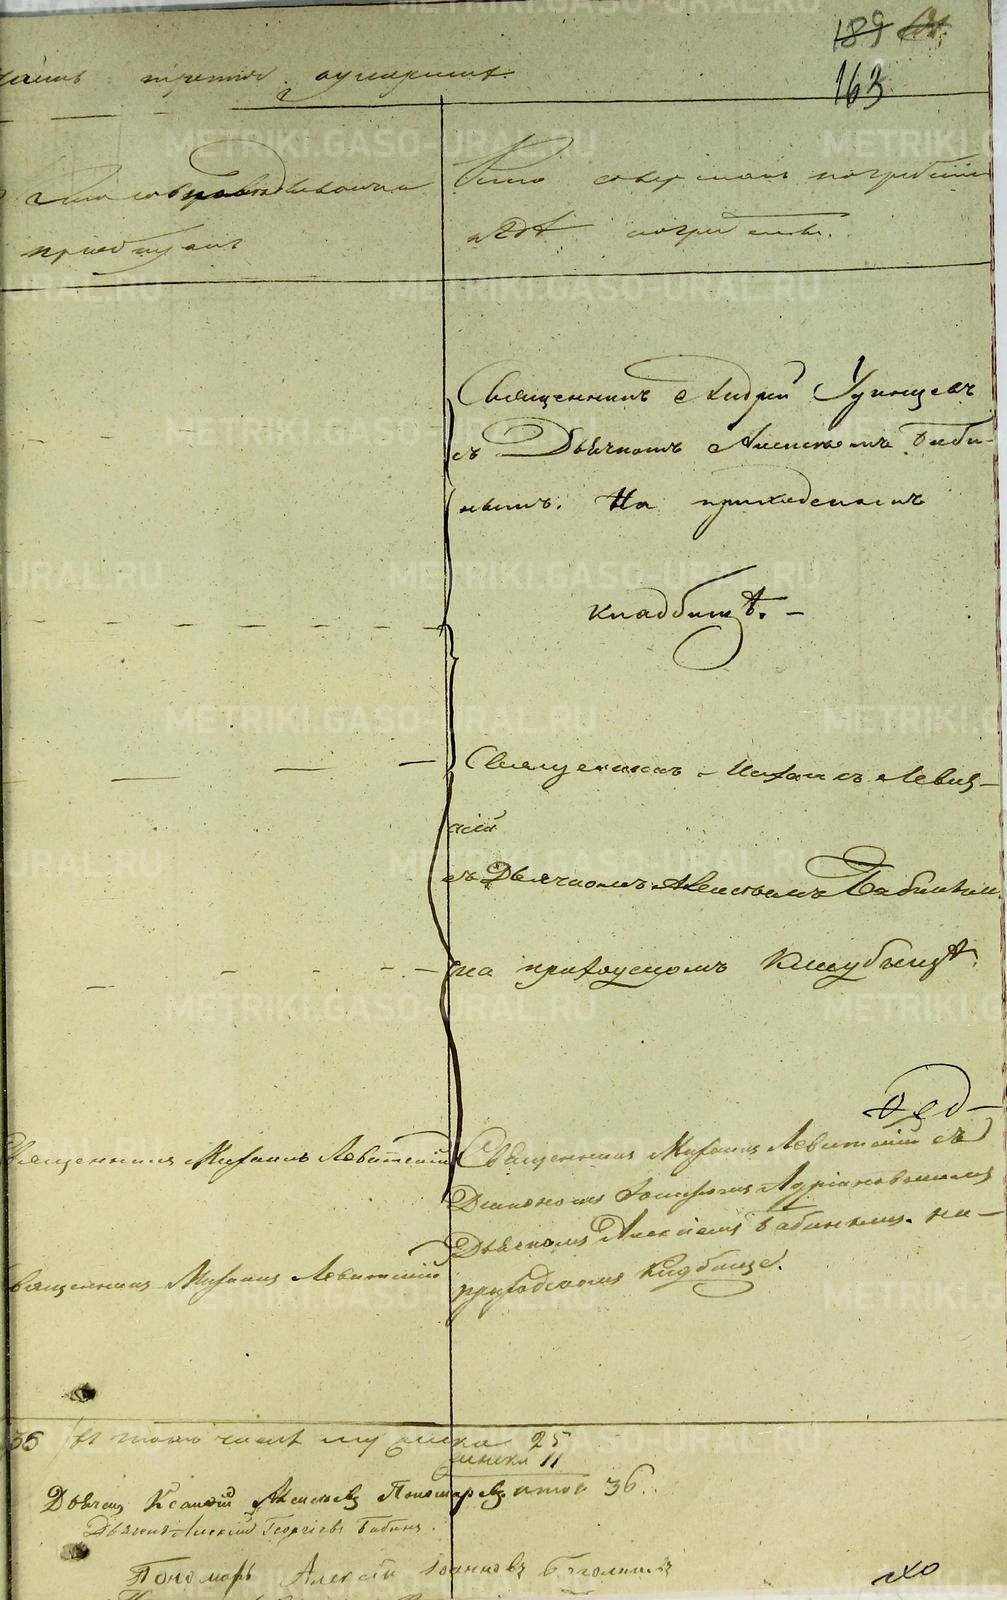 189
163
часть третья о умершихъ
Кто исповѣдывалъ и
приобщалъ
Кто совершалъ погребеніе
и гдѣ погребены.
Священникъ Андрей Удинцевъ
съ Дьячкомъ Алексѣемъ Баби-
нымъ. На приходскомъ
кладбищѣ. –
Священникъ Михаилъ Левиц-
кій
съ Дьячкомъ Алексѣемъ Бабинымъ
на приходскомъ кладбищѣ.
Священникъ Михаилъ Левитскій
Священникъ Михаилъ Левитскій съ
Діакономъ Адріановскимъ
Дьячкомъ Алексіемъ Бабинымъ. на –
приходскомъ Кладбище.
Священникъ Михаилъ Левитскій
36 въ томъ числѣ мужеска 25
женска 11
итого 36.
Дьячекъ Алексѣевъ Пономаревъ
Дьячекъ Алексій Георгіевъ Бабинъ.
Пономарь Алексій Іоанновъ
METRIKI.GASO-URAL.RU